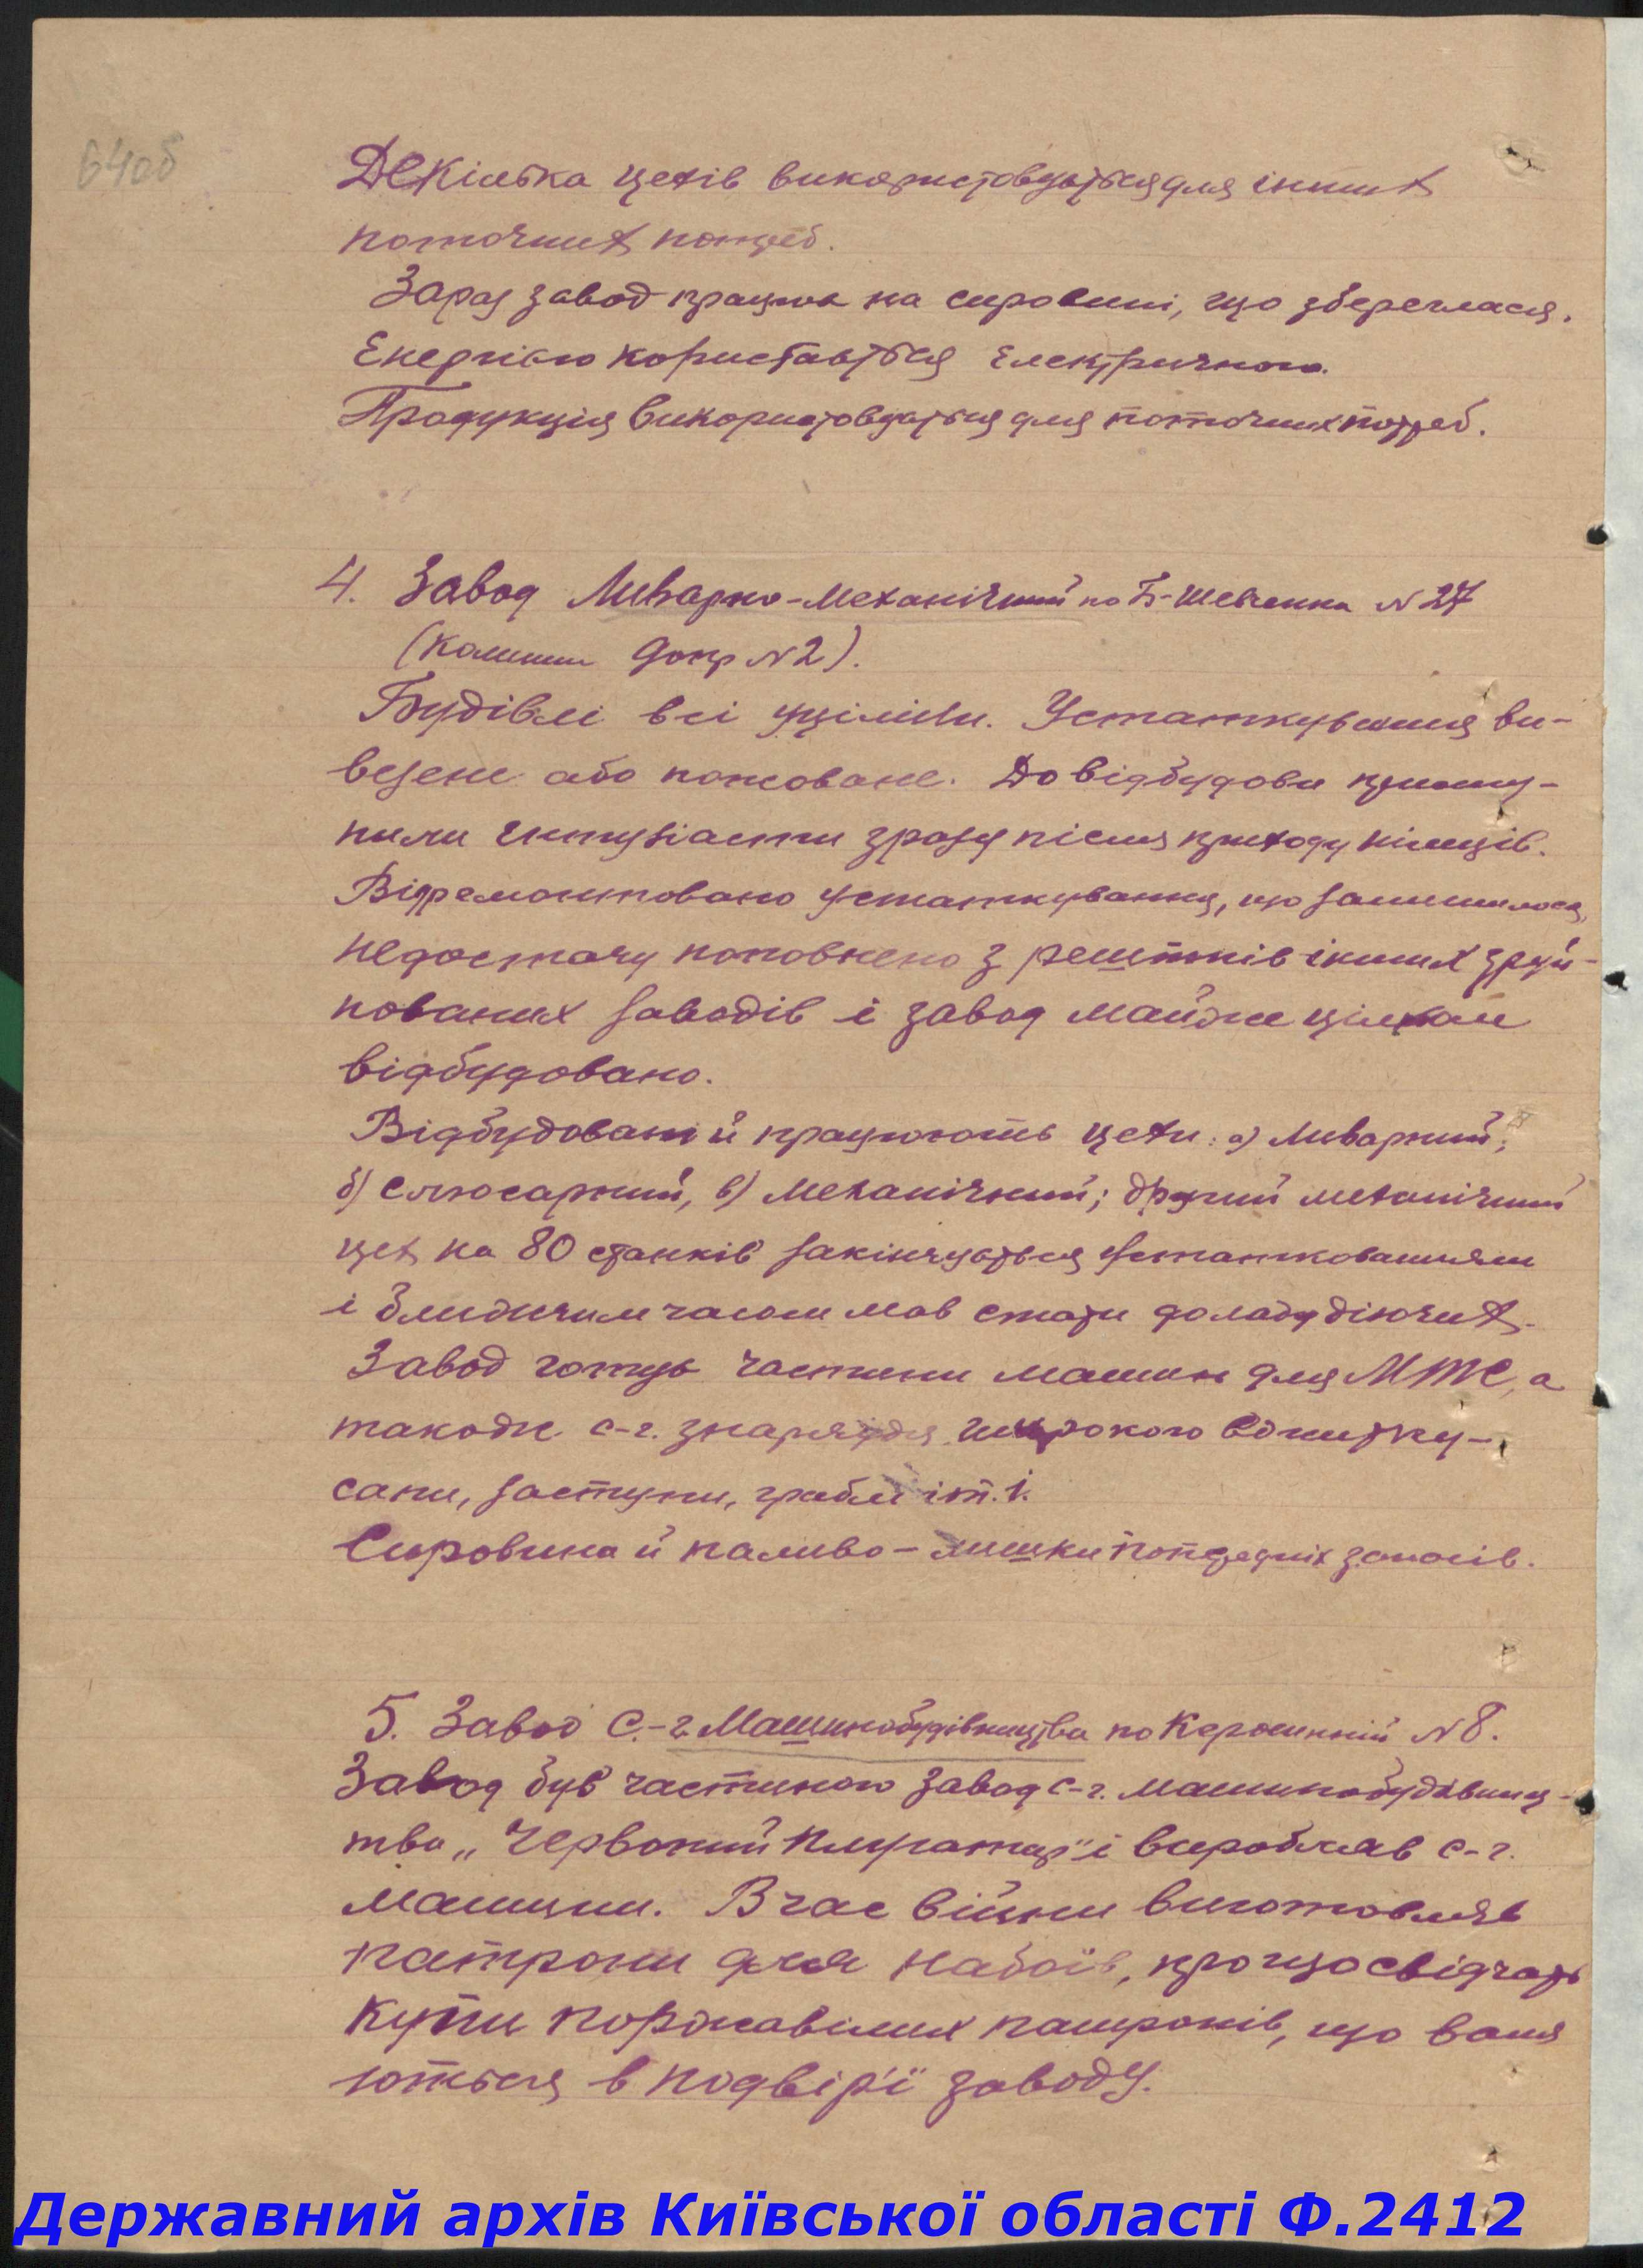 64об
Декілька цехів використовується для інших
поточних потреб.
Зараз завод працює на сировині, що збереглася.
Енергією користається електричною.
Продукція використовується для поточних потреб.
4. Завод Ливарно-Механічний по Б-Шевченка N 27
(Колишн Допр N2).
Будівлі всі уціліли. Устаткування ви-
везене або попсоване. До відбудови присту-
пили ентузіасти зразу після приходу німців.
Відремонтовано устаткування, що залишилося,
недостачу поповнено з рештків інших зруй-
нованих заводів і завод майже цілком
відбудовано.
Відбудовані й працюють цехи: а) Ливарний;
б) Слюсарний, в) Механічний; другий механічний
цех на 80 станків закінчується устаткованням
і ближчим часом має стати до ладу діючих.
Завод готує частини машин для МТС, а
також с-г. знаряддя широкого вжитку-
сапи, заступи, граблі і т. і.
Сировина й паливо - лишки попередніх запасів.
5. Завод С.-г. Машинобудівництва по Керосинній N 8.
Завод був частиною завод с-г. машинобудівниц-
тва „Червоний Плугатар" і виробляв с-г.
машини. В час війни виготовляв
патрони для набоїв, про що свідчать
купи поржавілих патронів, що валя
ються в подвір'ї заводу.
Державний архів Київської області Ф.2412